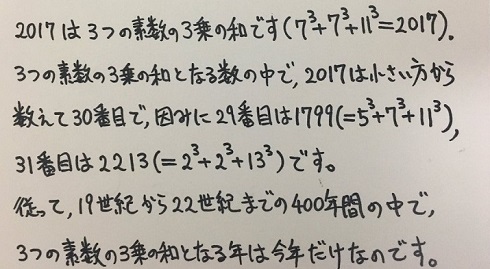 2017は3つの素数の3乗の和です(7³+7³+11³=2017).
3つの素数の3乗の和となる数の中で,2017は小さい方から
数えて30番目で,因みに29番目は1799(=5³+7³+11³),
31番目は2213(=2³+2³+13³)です。
従って,19世紀から22世紀までの400年間の中で,
3つの素数の3乗の和となる年は今年だけなのです。